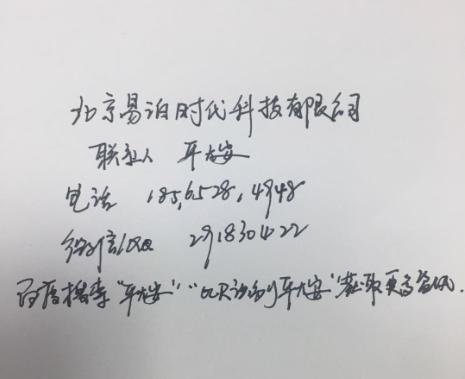 北京易泊时代科技有限公司
联系人 平大安
电话 185,6528,4948
微信/QQ 291830422
百度搜索“平大安”“OCR识别平大安”获取更多资讯.